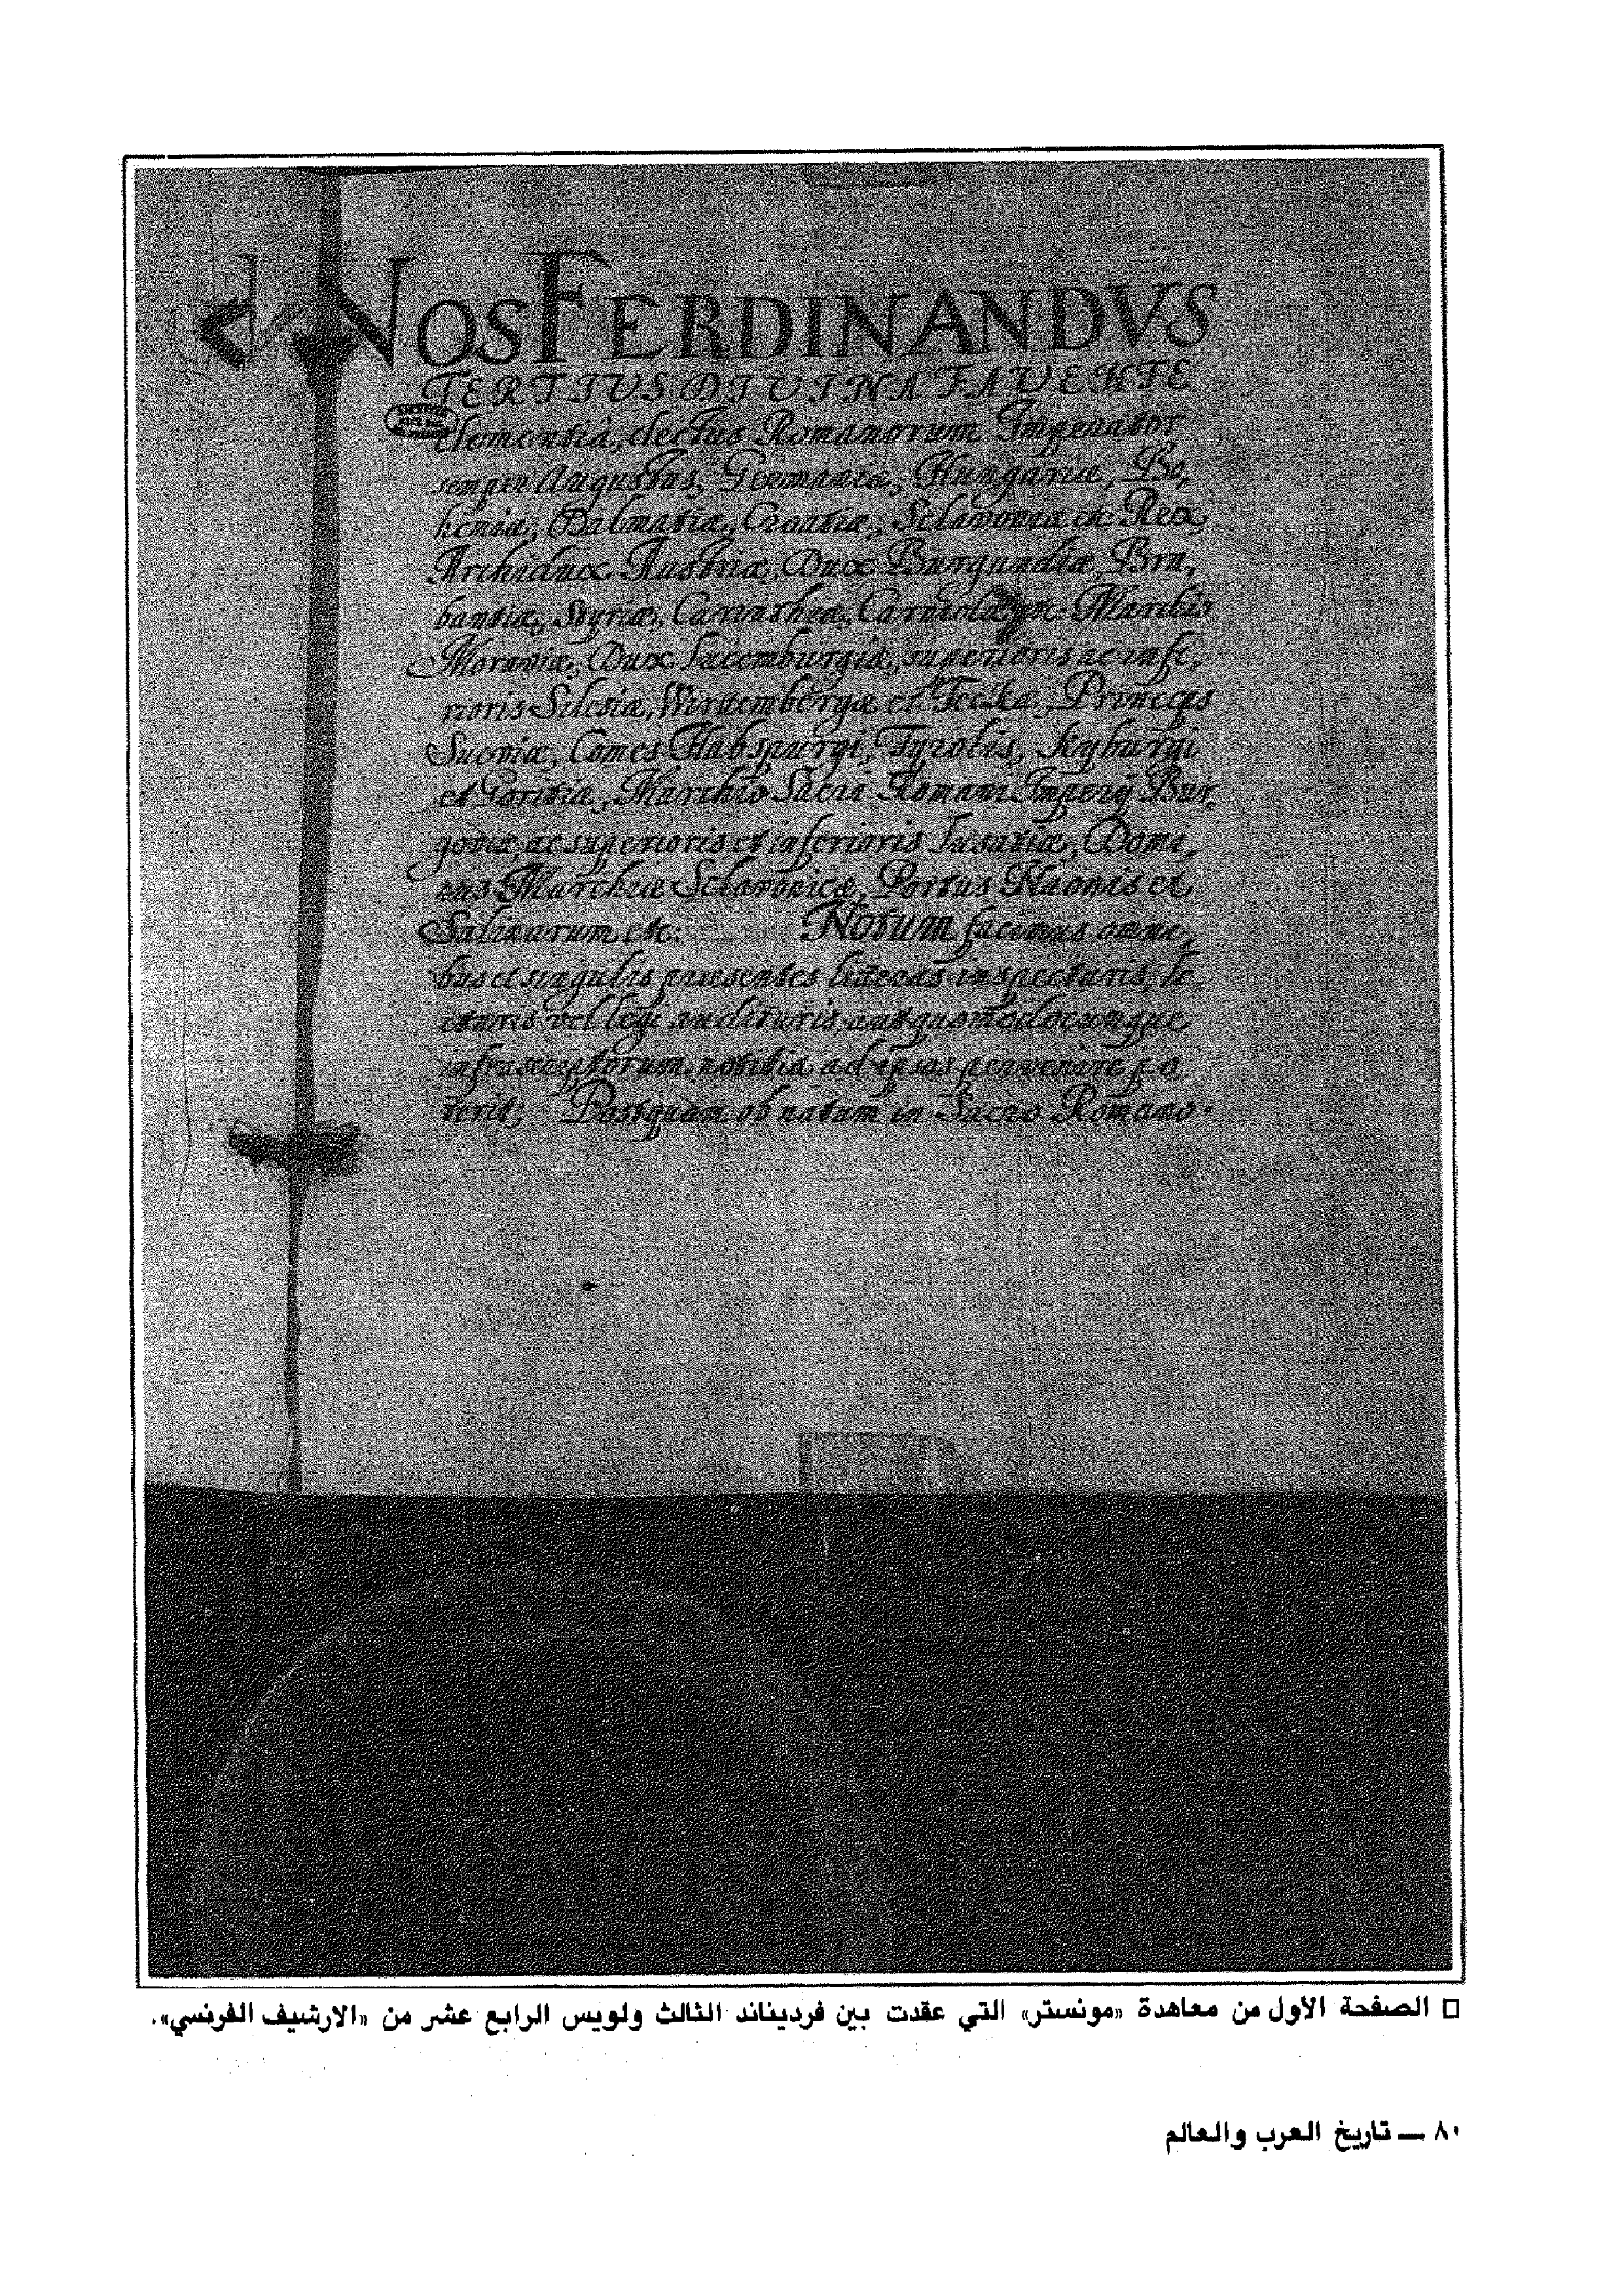 NOS FERDINANDVS
TERTIVS DIVINA FAVENTE
Clementia, electus Romanorum Imperator
semper Augustus, Germaniæ, Hungariæ, Bo,
hemiæ, Dalmatiæ, Croatiæ, Sclavoniæ etc Rex
Archidux Austriæ, Dux Burgundiæ, Bra,
bantiæ, Styriæ, Carinthiæ, Carniolæ etc: Marchio
Moraviæ, Dux Lucemburgiæ, superioris ac infe,
rioris Silesiæ, Wirtembergæ et Teckæ, Princeps
Sueviæ, Comes Habspurgi, Tyrolis, Kyburgi
et Goritiæ, Marchio Sacri Romani Imperij Bur,
goviæ, ac superioris et inferioris Lusatiæ, Domi,
nus Marchiæ Sclavonicæ, Portus Naonis et
Salinarum etc: Notum facimus omni,
bus et singulis præsentes literas inspecturis, le
cturis vel legi audituris aut quomodocumque
infrascriptorum notitia ad ipsos pervenire po,
terit; Postquam ob natam in Sacro Romano
□ الصفحة الاول من معاهدة «مونستر» التي عقدت بين فرديناند الثالث ولويس الرابع عشر من «الارشيف الفرنسي».
٨٠ — تاريخ العرب والعالم